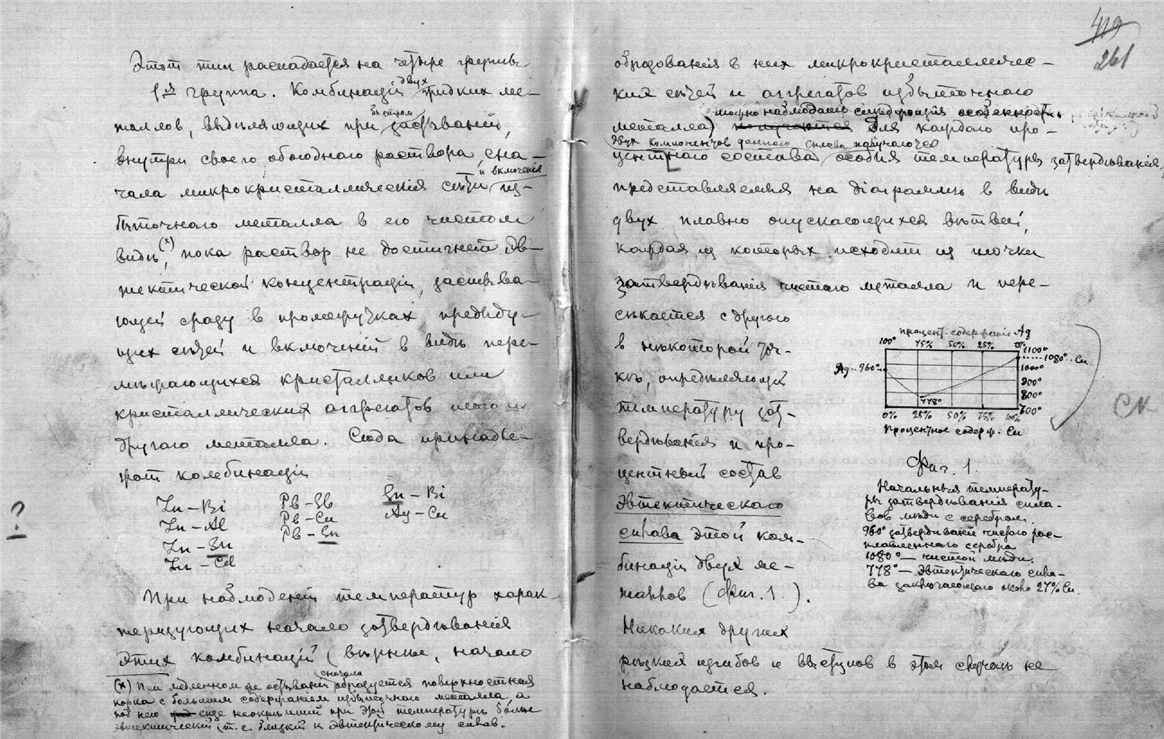 Этотъ типъ распадается на четыре группы
1ая группа. Комбинацiй двухъ жидкихъ ме-
талловъ, выдѣляющихъ при быстромъ застыванiи,
внутри своего обоюднаго раствора, сна-
чала микрокристаллическiя сѣти и включенiя из-
быточнаго металла въ его чистомъ
видѣ (х), пока растворъ не достигнетъ эв-
тектической концентрацiи, застыва-
ющей сразу въ промежуткахъ предыду-
щихъ сѣтей и включенiй въ видѣ пере-
мѣжающихся кристалликовъ или
кристаллическихъ аггрегатовъ того и
другаго металла. Сюда принадле-
жатъ комбинацiи
Zn – Bi
Zn – Al
Zn – Sn
Zn – Cd
Pb – Sb
Pb – Cu
Pb – Sn
Sn – Bi
Ag – Cu
?
При наблюденiи температуръ харак-
теризующихъ начало затвердѣванiя
этихъ комбинацiй (вѣрнѣе, начало
(х) При медленномъ же остыванiи сначала образуется поверхностная
корка съ большимъ содержанiемъ избыточнаго металла, а
подъ нею еще при этой температурѣ болѣе
эвтектическiй т.е. близкiй къ эвтектическому сплавъ.
419
261
образованiя въ нихъ микрокристалличес-
кихъ сѣтей и аггрегатовъ избыточнаго
металла) можно наблюдать слѣдующiя особенности
Для каждаго про-
двухъ компонентовъ даннаго сплава получается
центнаго состава особая температура затвердѣванiя,
представляемая на дiаграммѣ въ видѣ
двухъ плавно опускающихся вѣтвей,
каждая изъ которыхъ исходитъ изъ точки
затвердѣванiя чистаго металла и пере-
сѣкается съ другою
въ нѣкоторой точ-
кѣ, опредѣляющей
температуру зат-
вердѣванiя и про-
центный составъ
Эвтектическаго
сплава этой ком-
бинацiи двухъ ме-
талловъ (Фиг. 1.).
Никакихъ другихъ
рѣзкихъ изгибовъ и выступовъ въ этомъ случаѣ не
наблюдается.
процент. содержанiе Ag
100° 75% 50% 25% 0%
Ag – 960°
1100°
1080° – Cu
1000°
900°
800°
600°
778°
0% 25% 50% 75% 100%
Процентное содерж. Cu
Фиг. 1.
Начальныя температу-
ры затвердѣванiя спла-
вовъ мѣди съ серебромъ.
960° затвердѣванiе чистаго рас-
плавленнаго серебра
1080° – чистой мѣди,
778° – Эвтектическаго спла-
ва заключающаго около 27% Cu.